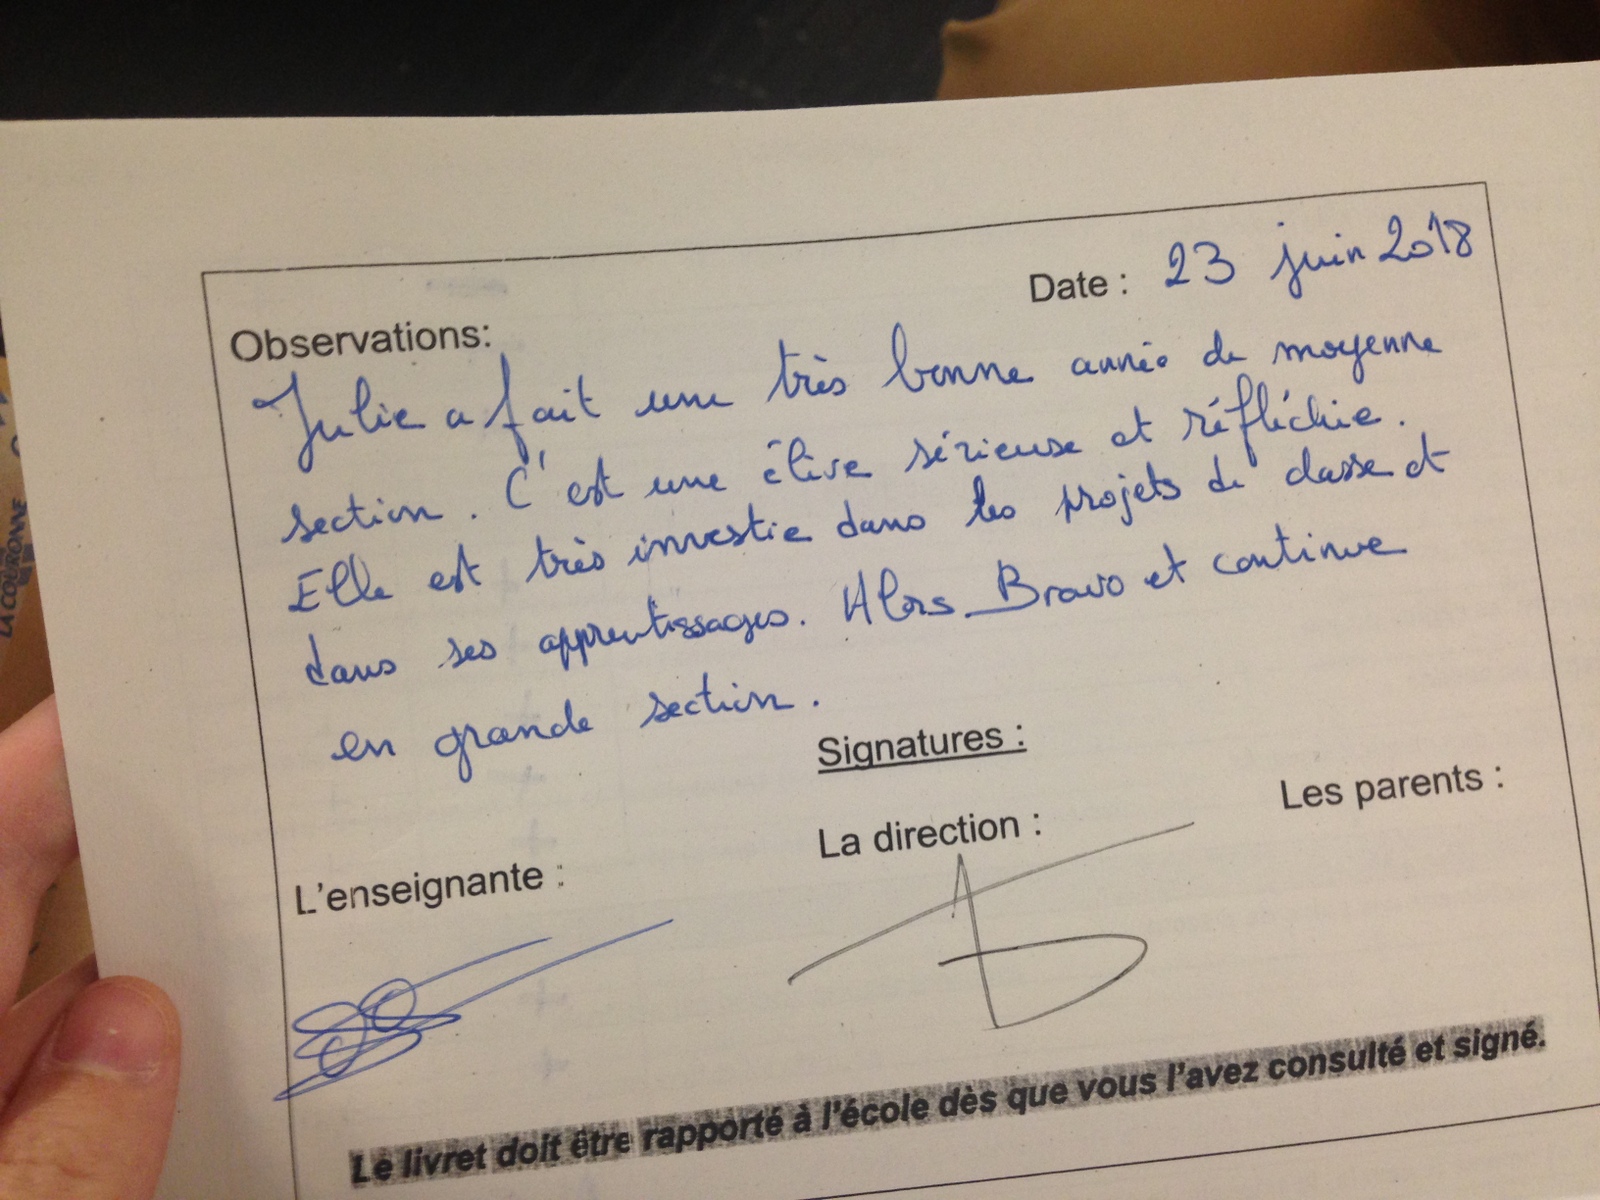 Date : 23 juin 2018
Observations:
Julie a fait une très bonne année de moyenne
section. C'est une élève sérieuse et réfléchie.
Elle est très investie dans les projets de classe et
dans ses apprentissages. Alors Bravo et continue
en grande section.
Signatures :
L'enseignante :
La direction :
Les parents :
Le livret doit être rapporté à l'école dès que vous l'avez consulté et signé.
LA COURONNE